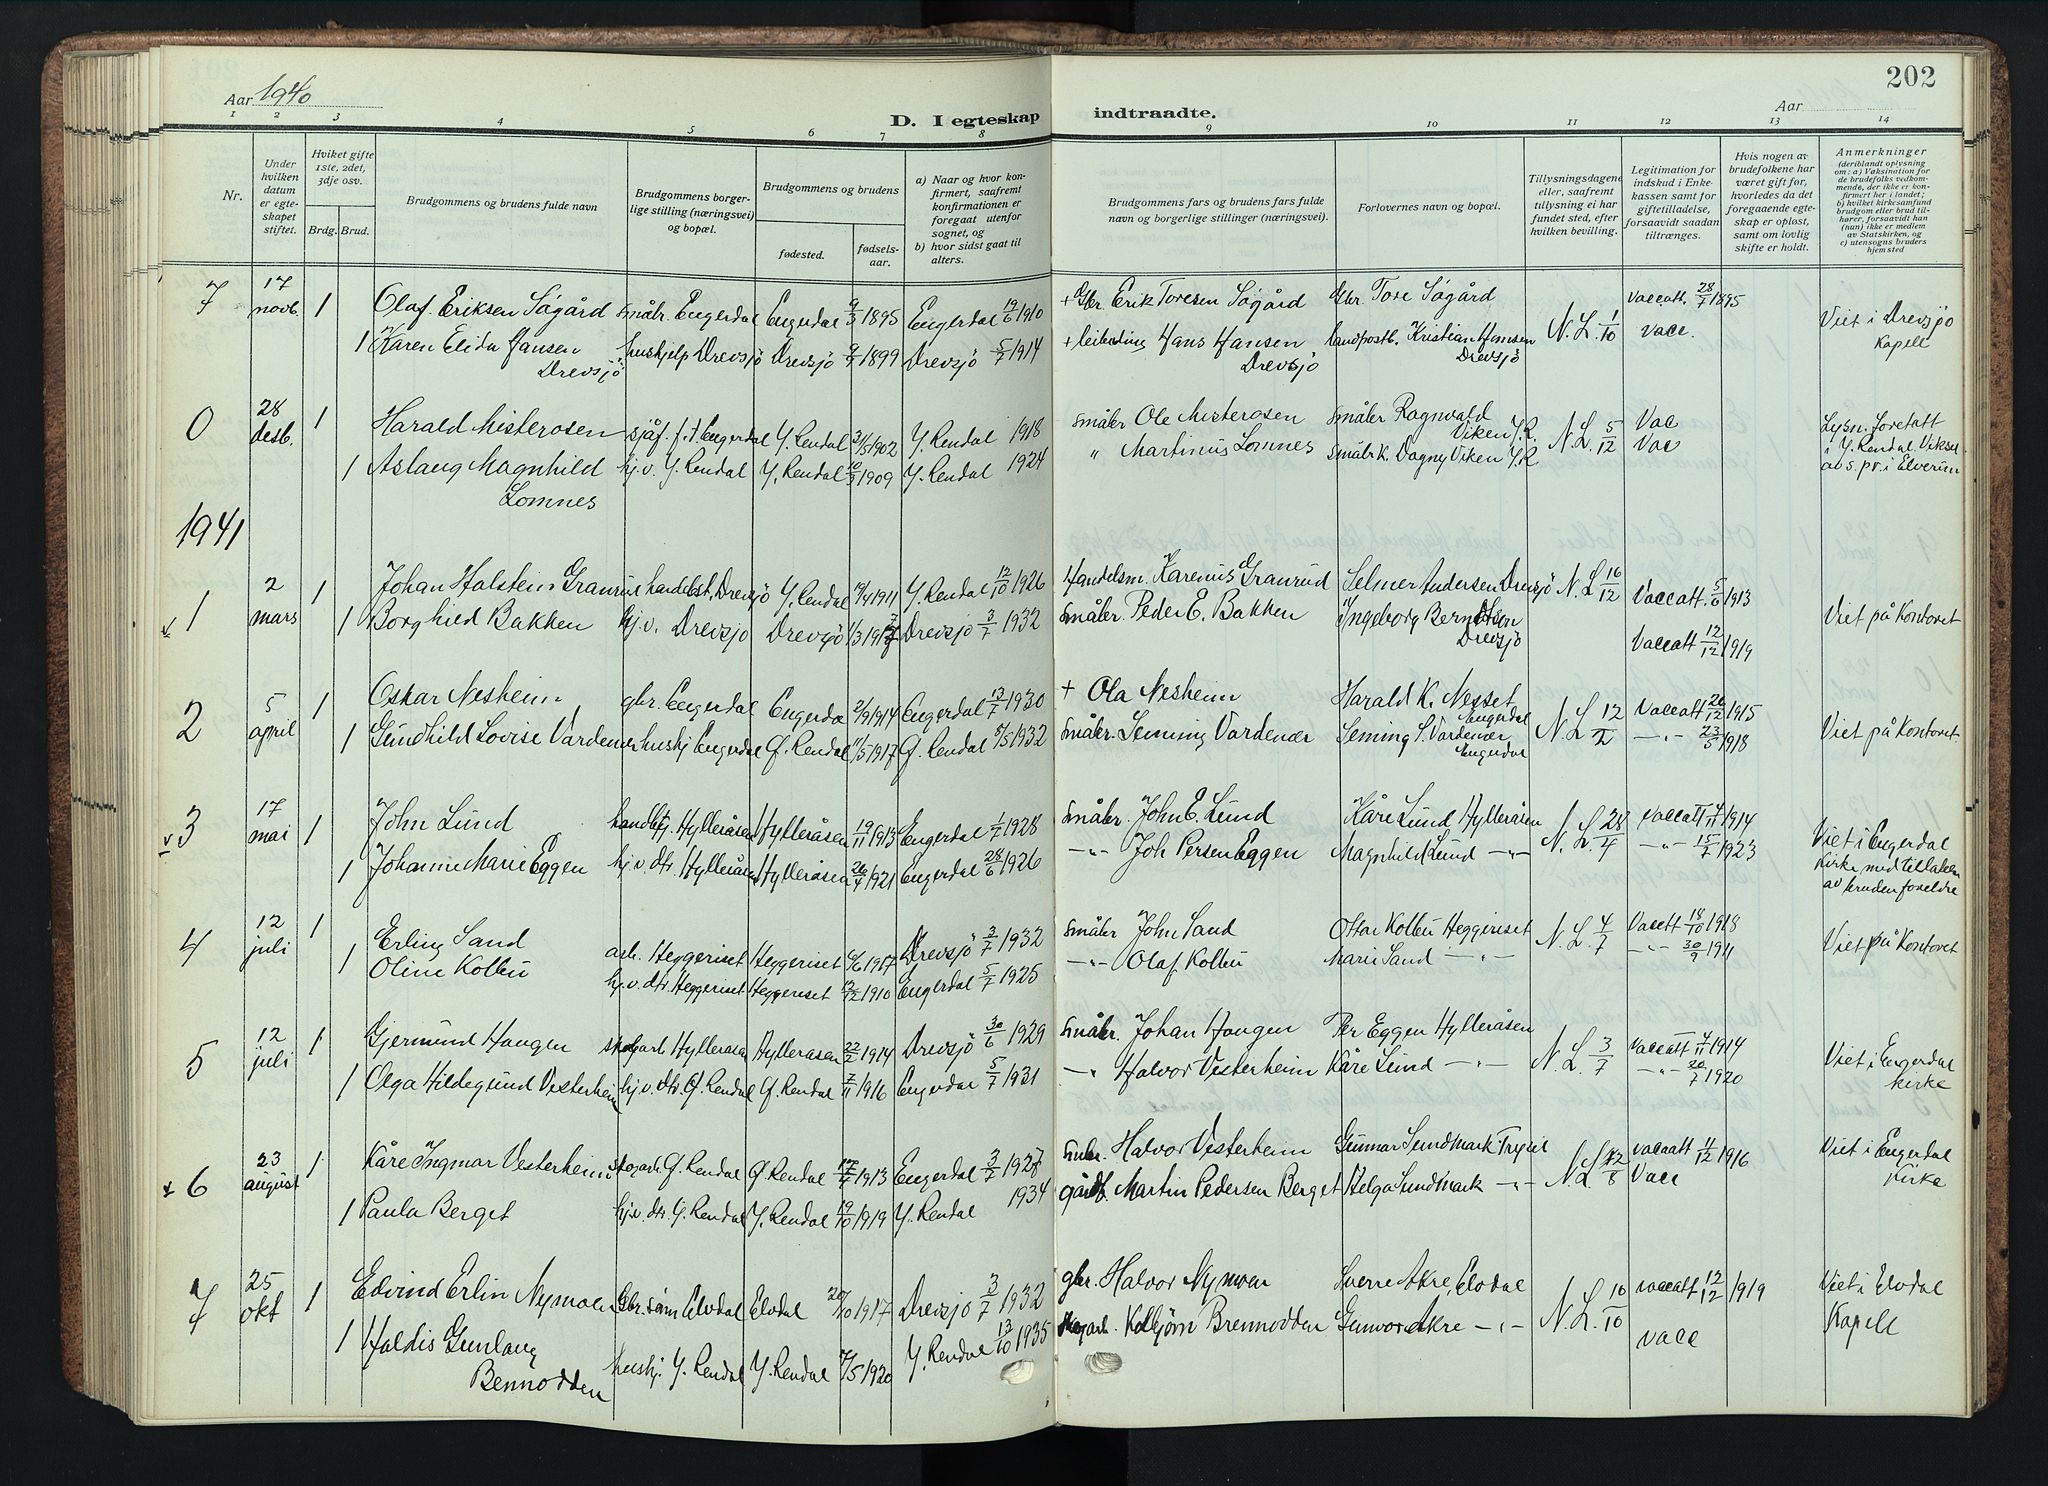 Aar 1940
D. I egteskap
indtraadte.
Aar
202
1 2 3 4 5 6 7 8 9 10 11 12 13 14
Nr.
Under hvilken datum er egteskapet stiftet.
Hviket gifte 1ste, 2det, 3dje osv.
Brdg. Brud.
Brudgommens og brudens fulde navn
Brudgommens borgerlige stilling (næringsvei) og bopæl.
Brudgommens og brudens
fødested.
fødselsaar.
a) Naar og hvor konfirmert, saafremt konfirmationen er foregaat utenfor sognet, og
b) hvor sidst gaat til alters.
Brudgommens fars og brudens fars fulde navn og borgerlige stillinger (næringsvei).
Forlovernes navn og bopæl.
Tillysningsdagene eller, saafremt tillysning ei har fundet sted, efter hvilken bevilling.
Legitimation for indskud i Enkekassen samt for giftetilladelse, forsaavidt saadan tiltrænges.
Hvis nogen av brudefolkene har været gift før, hvorledes da det foregaaende egteskap er opløst, samt om lovlig skifte er holdt.
Anmerkninger
(deriblandt oplysning om: a) Vaksination for de brudefolks vedkommende, der ikke er konfirmert her i landet; b) hvilket kirkesamfund brudgom eller brud tilhører, forsaavidt han (hun) ikke er medlem av Statskirken, og c) utensogns bruders hjemsted
7 17 novb. 1 Olaf Eriksen Søgård småbr. Engerdal Engerdal 9/3 1895 Engerdal 19/6 1910 + Gbr Erik Toresen Søgård Gbr Tore Søgård N.L. 1/10 Vaccatt. 28/7 1895 Viet i Drevsjø Kapell
1 Karen Elida Hansen Drevsjö hushjelp Drevsjö Drevsjö 1899 Drevsjö 5/7 1914 + Hans Hansen Drevsjö landpostb. Kristian Hansen Drevsjö vacc.
0 28 desb. 1 Harald Misterosen sjåf. Engerdal Y. Rendal 1902 Y. Rendal 1918 småbr Ole Misterosen småbr Ragnvald Viken Y.R. N.L. 5/12 Vac Lysn. foretatt i Y. Rendal
1 Aslaug Magnhild Lomnes hj.v. Y. Rendal Y. Rendal 10/3 1909 Y. Rendal 1924 " Martinus Lomnes småbr k. Dagny Viken Y.R Vac av s.pr. i Elverum
1941
1 2 mars 1 Johan Halstein Granrud Drevsjö Y. Rendal 1911 Y. Rendal 12/10 1926 Handelsm. Karenus Granrud Selmer Andersen Drevsjö N.L. 16/12 Vaccatt. 5/6 1913 Viet på Kontoret
1 Borghild Bakken hj.v. Drevsjö Drevsjö Drevsjö 3/7 1932 småbr. Peder E. Bakken Ingeborg Berntsen Drevsjö Vaccatt 12/12 1919
2 5 april 1 Oskar Nesheim gbr. Engerdal Engerdal 2/9 1914 Engerdal 13/7 1930 + Ola Nesheim Harald K. Nesset Engerdal N.L. 12/2 Vaccatt 20/12 1915 Viet på Kontoret
1 Gundhild Lovise Vardenær hushj Engerdal Ø. Rendal 1917 Ø. Rendal 1932 småbr. Semming Vardenær Seming S. Vardenær Engerdal —"— 23/5 1918
3 17 mai 1 John Lund Hylleråsen Hylleråsen 19/11 1913 Engerdal 1/7 1928 småbr. John E. Lund Kåre Lund Hylleråsen N.L. 28/4 Vaccatt 1914 Viet i Engerdal
1 Johanne Marie Eggen hj.v. dtr. Hylleråsen Hylleråsen 26/4 1921 Engerdal 28/6 1926 —"— Joh Persen Eggen Magnhild Lund —"— —"— 15/7 1923 Kirke med tillatelse av bruden foreldre
4 12 juli 1 Erling Sand arb. Heggeriset Heggeriset Drevsjö 3/7 1932 småbr John Sand Ottar Kolbu Heggeriset N.L. 4/7 Vacatt 18/10 1918 Viet på Kontoret
1 Oline Kolbu hj.v. dtr. Heggeriset Heggeriset 1910 Engerdal 5/7 1925 —"— Olaf Kolbu Marie Sand —"— —"— 30/9 1911
5 12 juli 1 Gjermund Haugen skogarb Hylleråsen Hylleråsen 22/2 1914 Drevsjö 30/6 1929 småbr. Johan Haugen Per Eggen Hylleråsen N.L. 3/7 Vaccatt 4/11 1914 Viet i Engerdal kirke
1 Olga Hildegund Vesterheim hj.v. dtr. Ø. Rendal Ø. Rendal 7/11 1916 Engerdal 5/7 1931 —" Halvor Vesterheim Kåre Lund —"— —"— 20/7 1920
6 23 august 1 Kåre Ingmar Vesterheim skogarb. Ø. Rendal Ø. Rendal 1913 Engerdal 3/7 Halvor Vesterheim Gunnar Sundmark Trysil N.L. vaccatt 11/12 1916 Viet i Engerdal kirke
1 Paula Berget hj.v. dtr. Y. Rendal Y. Rendal 19/10 1919 Y. Rendal 1934 Martin Pedersen Berget Helga Sundmark —"— Vacc
7 25 okt 1 Edvind Erlin Nymoen Gbr.sønn Elvdal Elvdal 20/10 1917 Drevsjö 3/7 1932 gbr. Halvor Nymoen Sverre Akre, Elvdal N.L. 10/10 vaccatt 12/12 1919 Viet i Elvdal Kapell
1 Haldis Gunlaug Bennodden hushj. Y. Rendal Y. Rendal 1920 Y. Rendal 13/10 1935 skogarb. Kolbjørn Brennodden Gunvor Akre —"— vacc